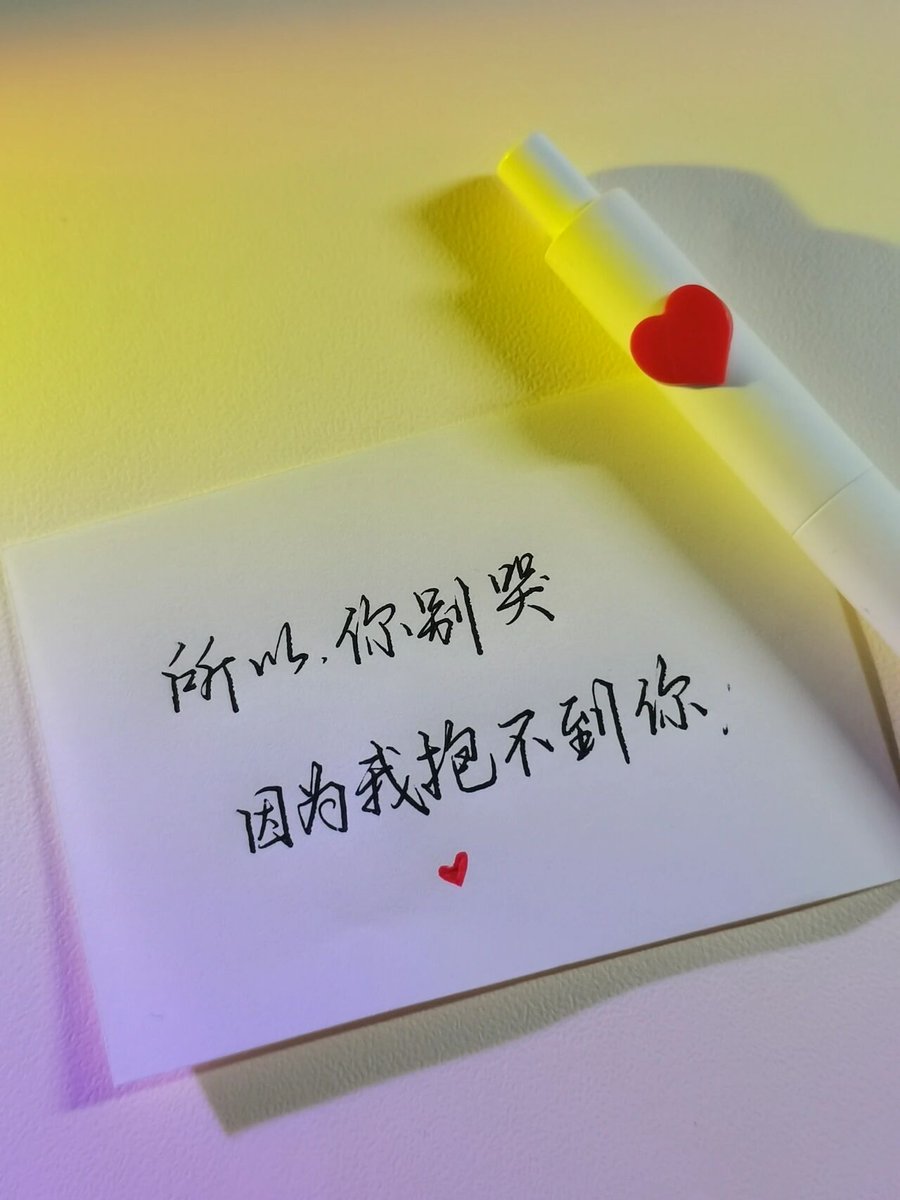 所以,你别哭
因为我抱不到你.